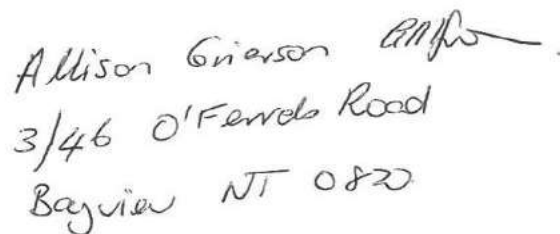 Allison Grierson
3/46 O'Ferrals Road
Bayview NT 0820